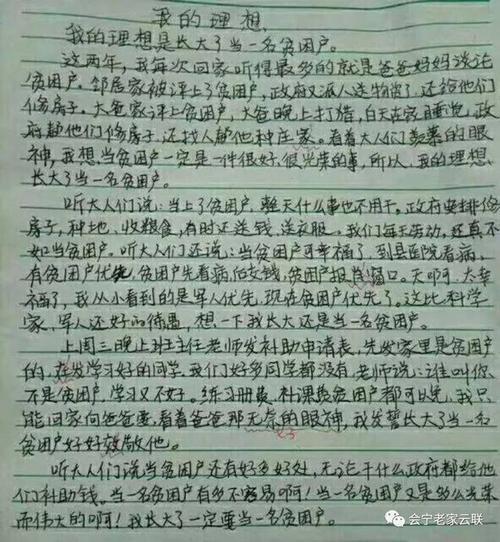 我的理想
我的理想是长大了当一名贫困户。
这两年,我每次回家听得最多的就是爸爸妈妈谈论
贫困户。邻居家被评上了贫困户,政府又派人送物资了,还给他们
修房子。大爸家评上贫困户,大爸晚上打牌,白天在家睡觉,政
府帮他们修房子,还找人帮他种庄家。看着大人们羡慕的眼
神,我想当贫困户一定是一件很好、很光荣的事,所以,我的理想
长大了当一名贫困户。
听大人们说:当上了贫困户,整天什么事也不用干。政府安排修
房子,种地、收粮食,有时还送钱、送衣服。我们每天劳动,还真不
如当贫困户。听大人们还说:当贫困户可幸福了,到县医院看病,
有贫困户优先,贫困户先看病后交钱,贫困户报销窗口。天啊,太幸
福了,我从小看到的是军人优先,现在贫困户优先了。这比科学
家,军人还好的待遇,想一下我长大还是当一名贫困户。
上周三晚上班主任老师发补助申请表,先发家里是贫困户
的,在发学习好的同学,我们好多同学都没有,老师说:谁叫你
不是贫困户,学习又不好。练习册费、补课费贫困户都可以免,我只
能回家向爸爸要,看着爸爸那无奈的眼神,我发誓长大了当一名
贫困户好好孝敬他。
听大人们说当贫困户还有好多好处,无论干什么政府都给他
们补助钱。当一名贫困户有多不容易啊!当一名贫困户又是多么光荣
而伟大的啊!我长大了一定要当一名贫困户。
会宁老家云联